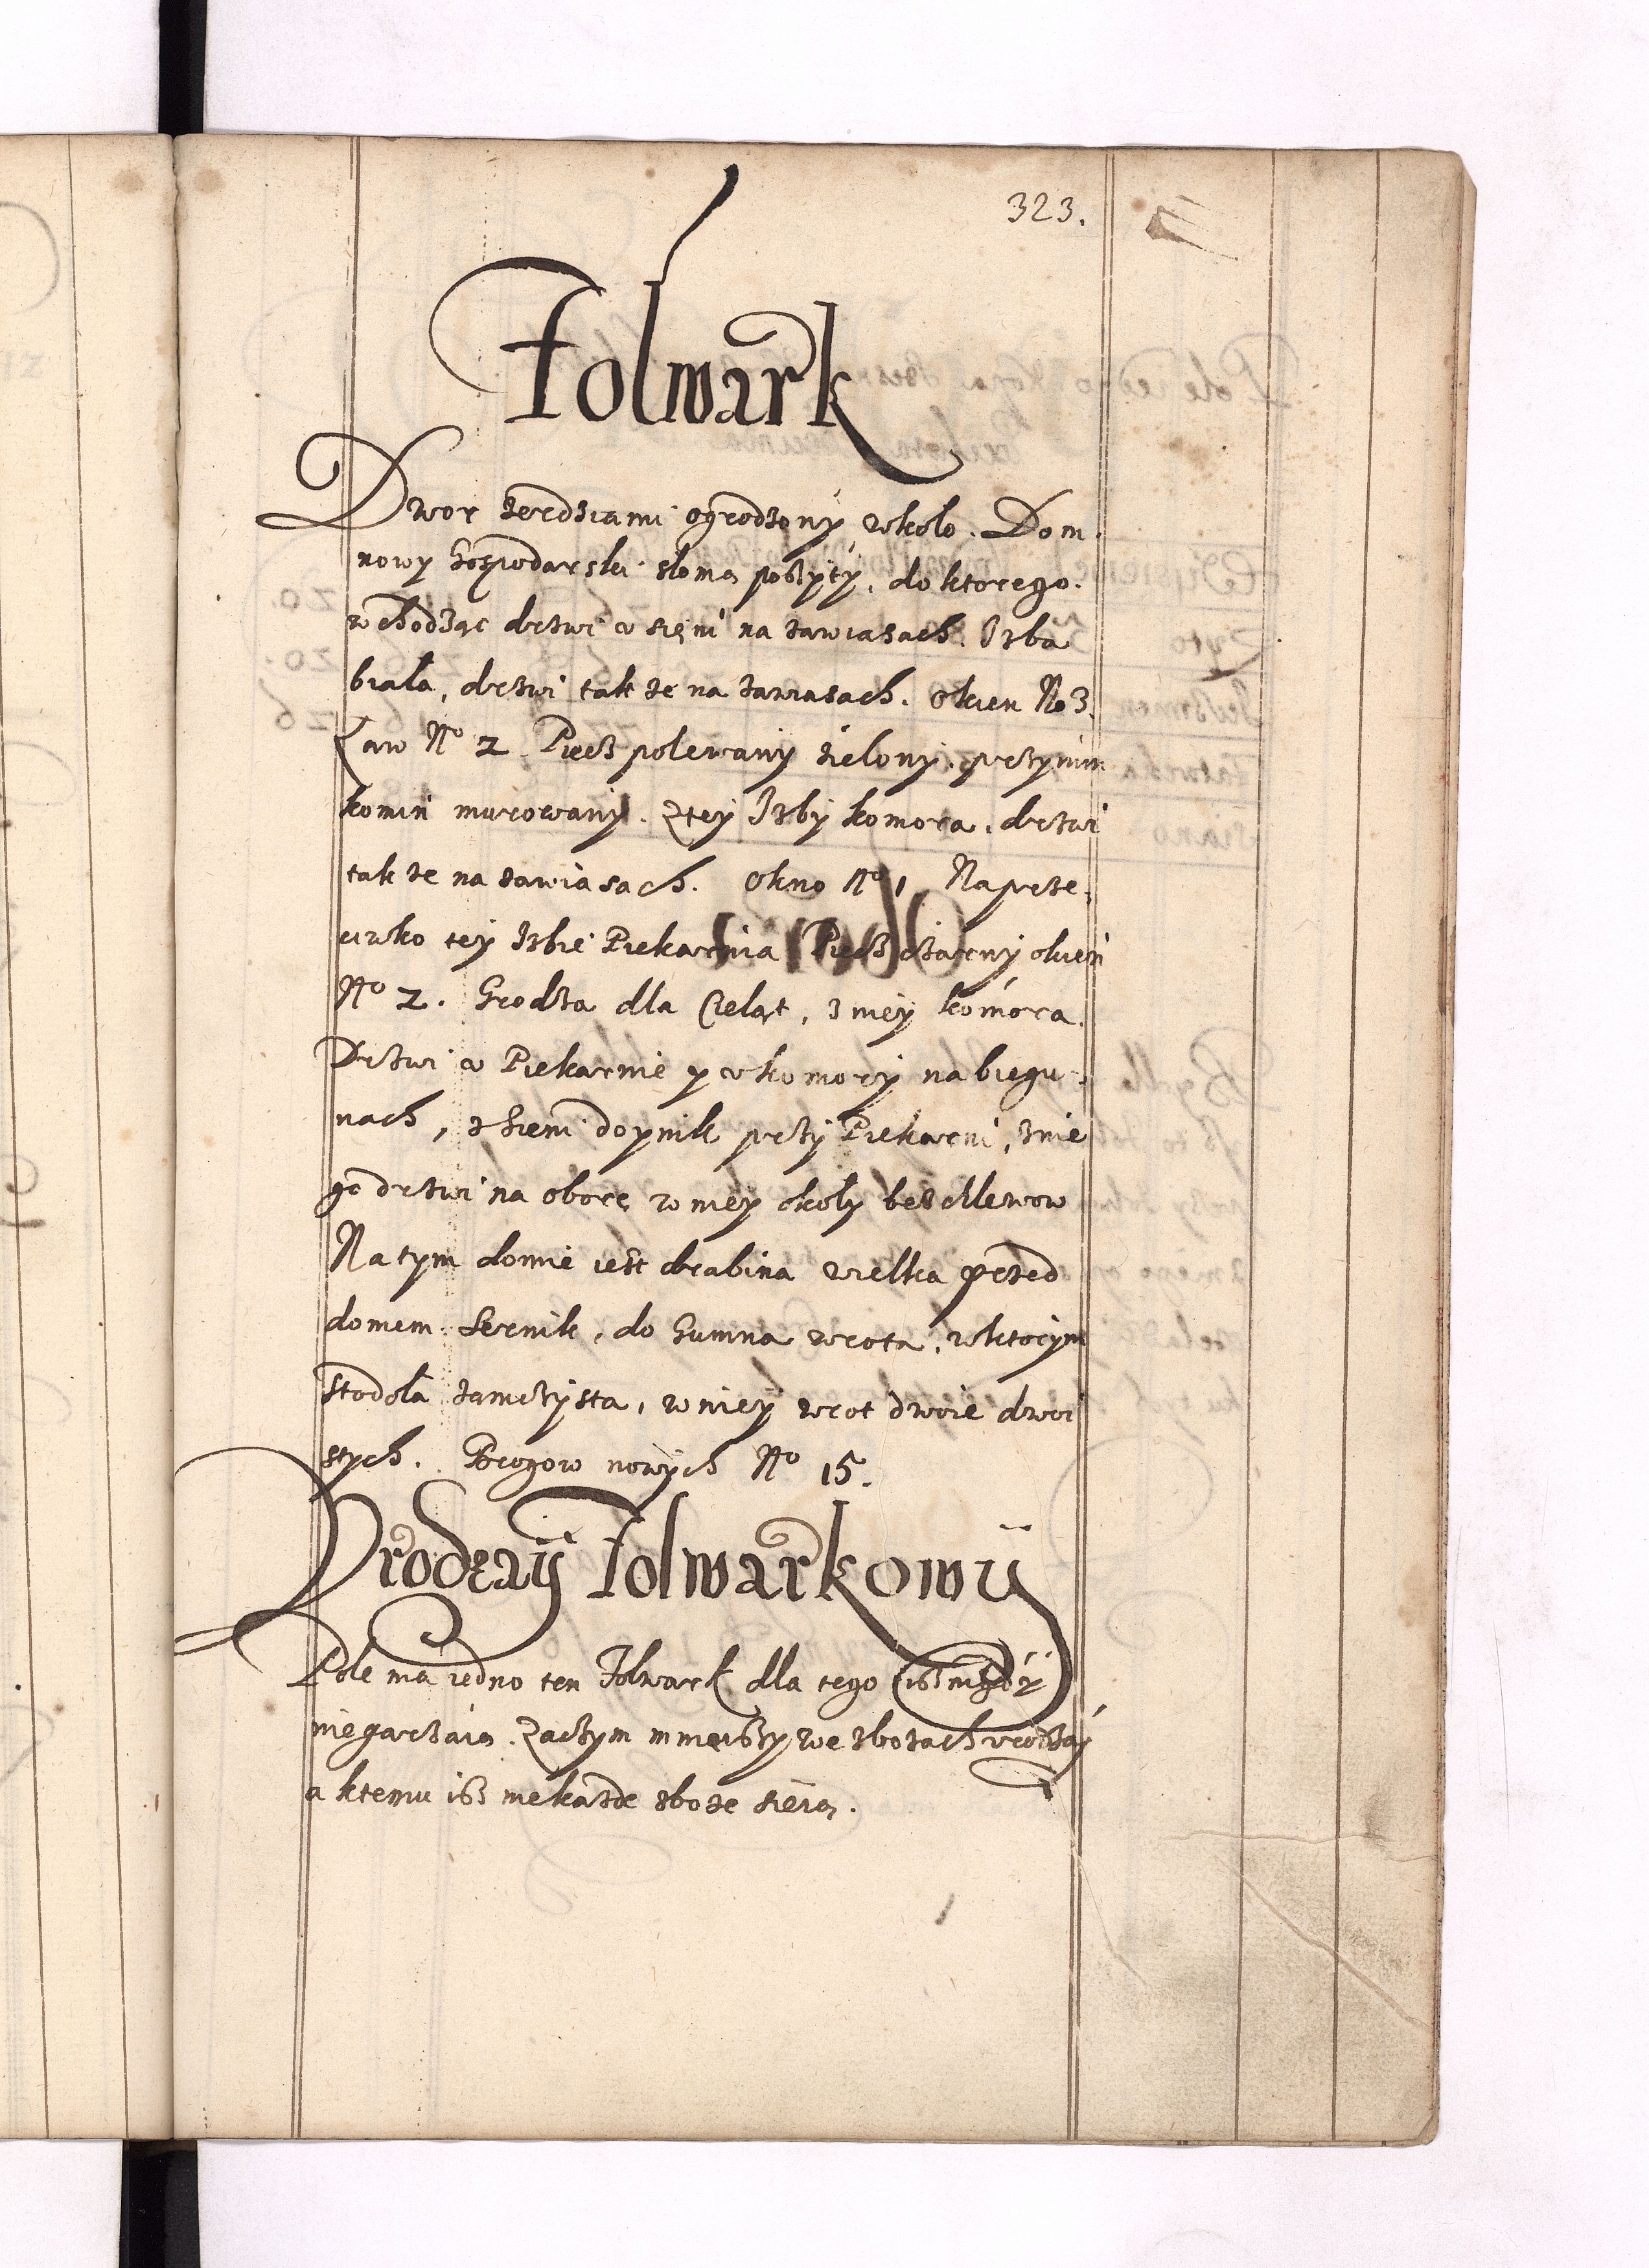 323.
Folwark
Dwor zerdziami ogrodzony wkoło. Dom
nowy Gospodarski słomą poszyty, do ktorego
wchodząc drzwi w sięni na zawiasach. Izba
biała, drzwi takze na zawiasach. Okien No 3.
Ław No 2 Piecz polewany zielony, przynim
komin murowany. Ztey Izby komora, drzwi
takze na zawiasach. Okno No 1 Naprze-
ciwko tey Izbie Piekarnia Piecz czarny okien
No 2. Grodza dla Cieląt, zniey komora.
Drzwi w Piekarnie y wkomory nabiegu-
nach, z Sieni doynik przy Piekarni, znie
go drzwi na oborę w niey okoły bez chlewow
Natym domie iest drabina wielka przed
domem Sernik, do Gumna wrota, wktorym
stodoła zamczysta, w niey wrot dwoie dwoi
stych. Brogow nowych No 15.
Vrodzay Folwarkowy
Pole ma iedno ten Folwark dla tego isz nigdy
niegarzaią. Zaczym mnieiszy we zbozach vrodzay
a ktemu isz niekazde zboze sieią.